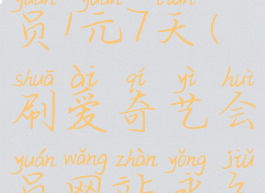 yuán yuán tiān
员1元7天(
shuā ài qí yì huì
刷爱奇艺会
yuán wǎng zhàn yǒng jiǔ
员网站永